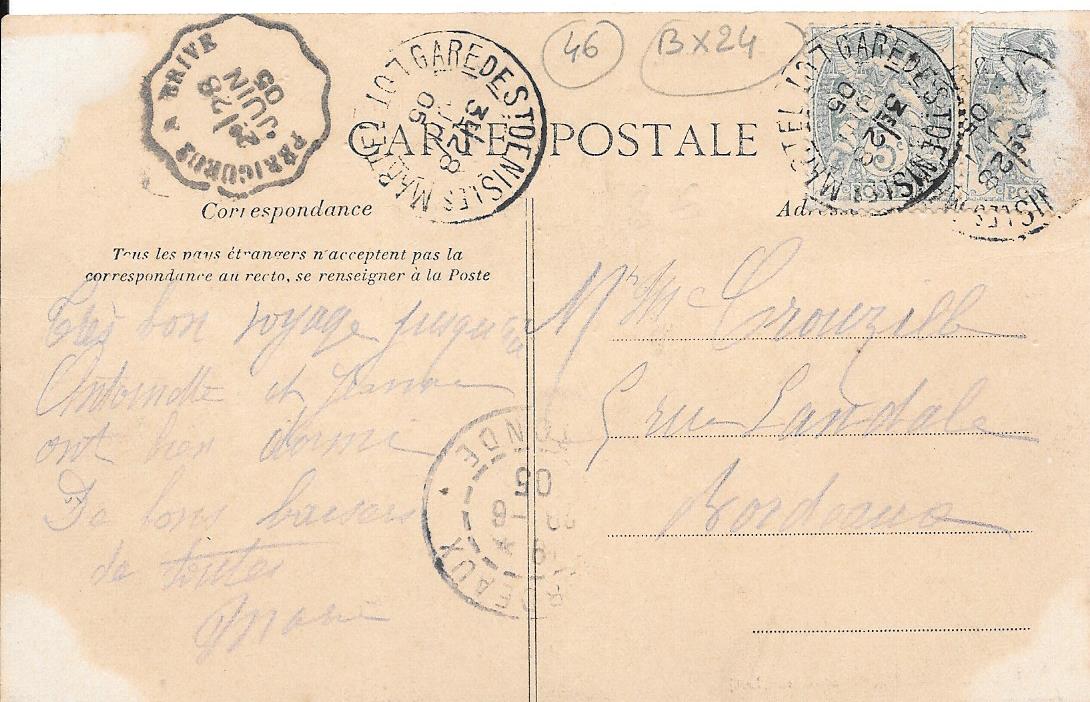 46 B X 24
PERIGUEUX A BRIVE
2E/28
JUIN
05
GARE DE ST DENIS LES MARTEL LOT
3E/28
JUIN
05
GARE DE ST DENIS LES MARTEL LOT
3E/28
JUIN
05
CARTE POSTALE
Correspondance
Adresse
Tous les pays étrangers n'acceptent pas la
correspondance au recto, se renseigner à la Poste
Très bon voyage jusqu'ici
Antoinette et Jeanne
ont bien dormi
De bons baisers
de toutes
Marie
Crouzille
5 rue Landale
Bordeaux
BORDEAUX GIRONDE
05